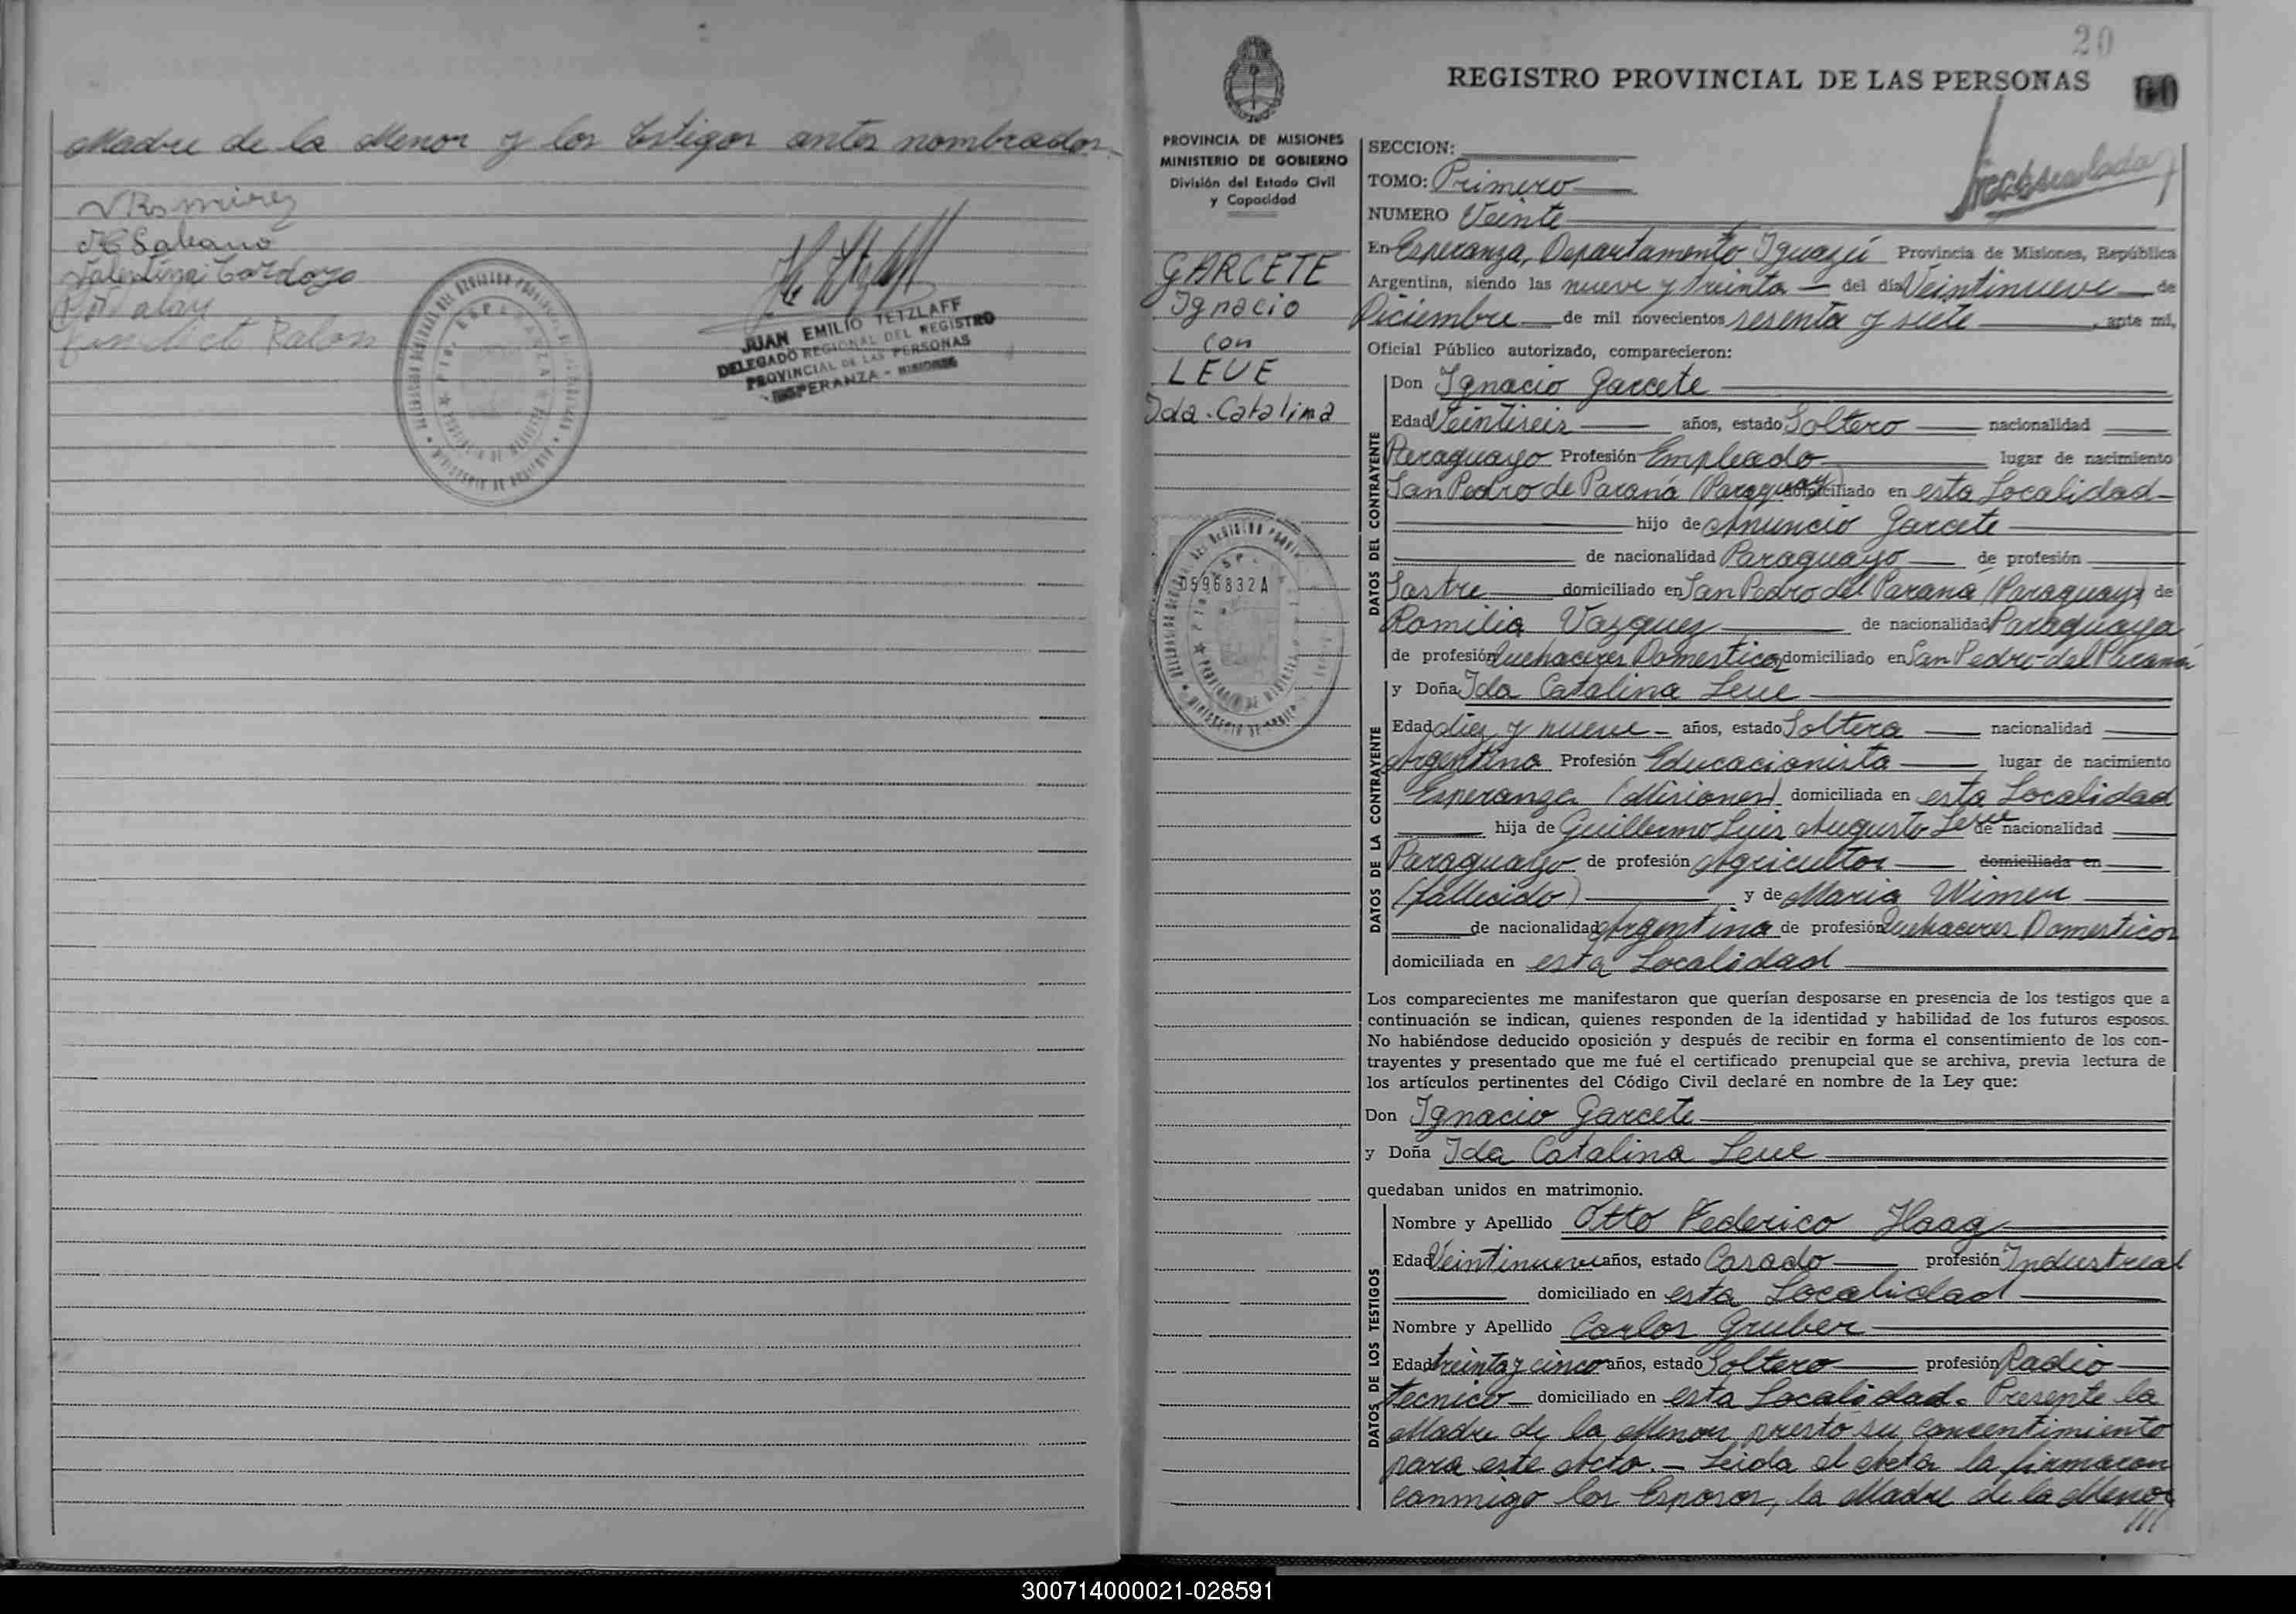 Madre de la Menor y los testigos antes nombrados.
VRamirez
Valentina Cardozo
JUAN EMILIO TETZLAFF
DELEGADO REGIONAL DEL REGISTRO
PROVINCIAL DE LAS PERSONAS
ESPERANZA - MISIONES
20
60
REGISTRO PROVINCIAL DE LAS PERSONAS
PROVINCIA DE MISIONES
MINISTERIO DE GOBIERNO
División del Estado Civil
y Capacidad
GARCETE
Ignacio
con
LEUE
Ida-Catalina
0596832A
SECCION:
TOMO: Primero
NUMERO Veinte
En Esperanza, Departamento Iguazú Provincia de Misiones, República
Argentina, siendo las nueve y treinta del día Veintinueve de
Diciembre de mil novecientos sesenta y siete, ante mí,
Oficial Público autorizado, comparecieron:
DATOS DEL CONTRAYENTE
Don Ignacio Garcete
Edad Veintiseis años, estado Soltero nacionalidad
Paraguayo Profesión Empleado lugar de nacimiento
San Pedro de Paraná (Paraguay) domiciliado en esta Localidad
hijo de Anuncio Garcete
de nacionalidad Paraguayo de profesión
Sastre domiciliado en San Pedro del Paraná (Paraguay) de
Romilia Vazquez de nacionalidad Paraguaya
de profesión Quehaceres Domesticos domiciliado en San Pedro del Paraná
DATOS DE LA CONTRAYENTE
y Doña Ida Catalina Leue
Edad diez y nueve años, estado Soltera nacionalidad
Argentina Profesión Educacionista lugar de nacimiento
Esperanza (Misiones) domiciliada en esta Localidad
hija de Guillermo Luis Augusto Leue de nacionalidad
Paraguayo de profesión Agricultor domiciliada en
(fallecido) y de Maria Wimeu
de nacionalidad Argentina de profesión Quehaceres Domesticos
domiciliada en esta Localidad
Los comparecientes me manifestaron que querían desposarse en presencia de los testigos que a
continuación se indican, quienes responden de la identidad y habilidad de los futuros esposos.
No habiéndose deducido oposición y después de recibir en forma el consentimiento de los con-
trayentes y presentado que me fué el certificado prenupcial que se archiva, previa lectura de
los artículos pertinentes del Código Civil declaré en nombre de la Ley que:
Don Ignacio Garcete
y Doña Ida Catalina Leue
quedaban unidos en matrimonio.
DATOS DE LOS TESTIGOS
Nombre y Apellido Otto Federico Haag
Edad Veintinueve años, estado Casado profesión Industrial
domiciliado en esta Localidad
Nombre y Apellido Carlos Gruber
Edad treinta y cinco años, estado Soltero profesión Radio
tecnico domiciliado en esta Localidad. Presente la
Madre de la Menor presto su consentimiento
para este Acto.- Leida el Acta la firmaron
conmigo los Esposos, la Madre de la Menor
///
300714000021-028591